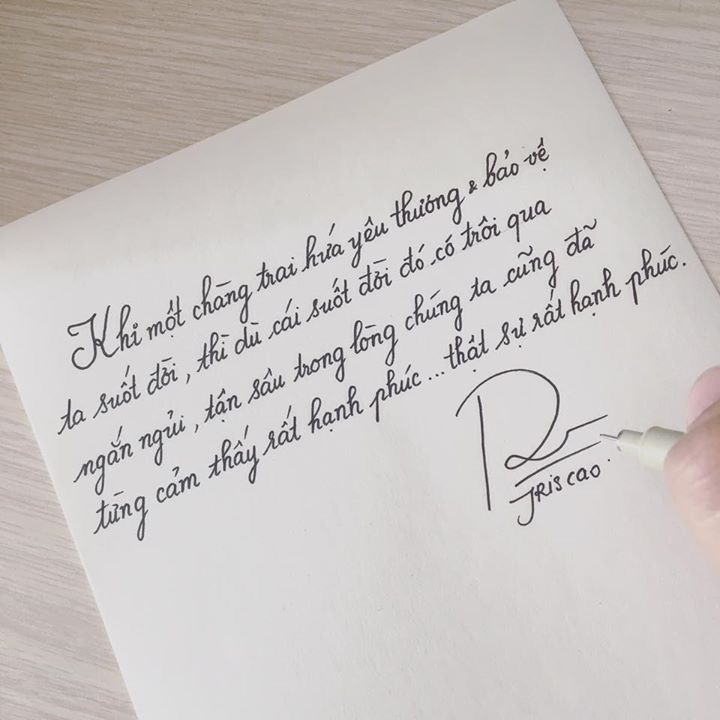 Khi một chàng trai hứa yêu thương & bảo vệ
ta suốt đời, thì dù cái suốt đời đó có trôi qua
ngắn ngủi, tận sâu trong lòng chúng ta cũng đã
từng cảm thấy rất hạnh phúc... thật sự rất hạnh phúc.
JRis cao.